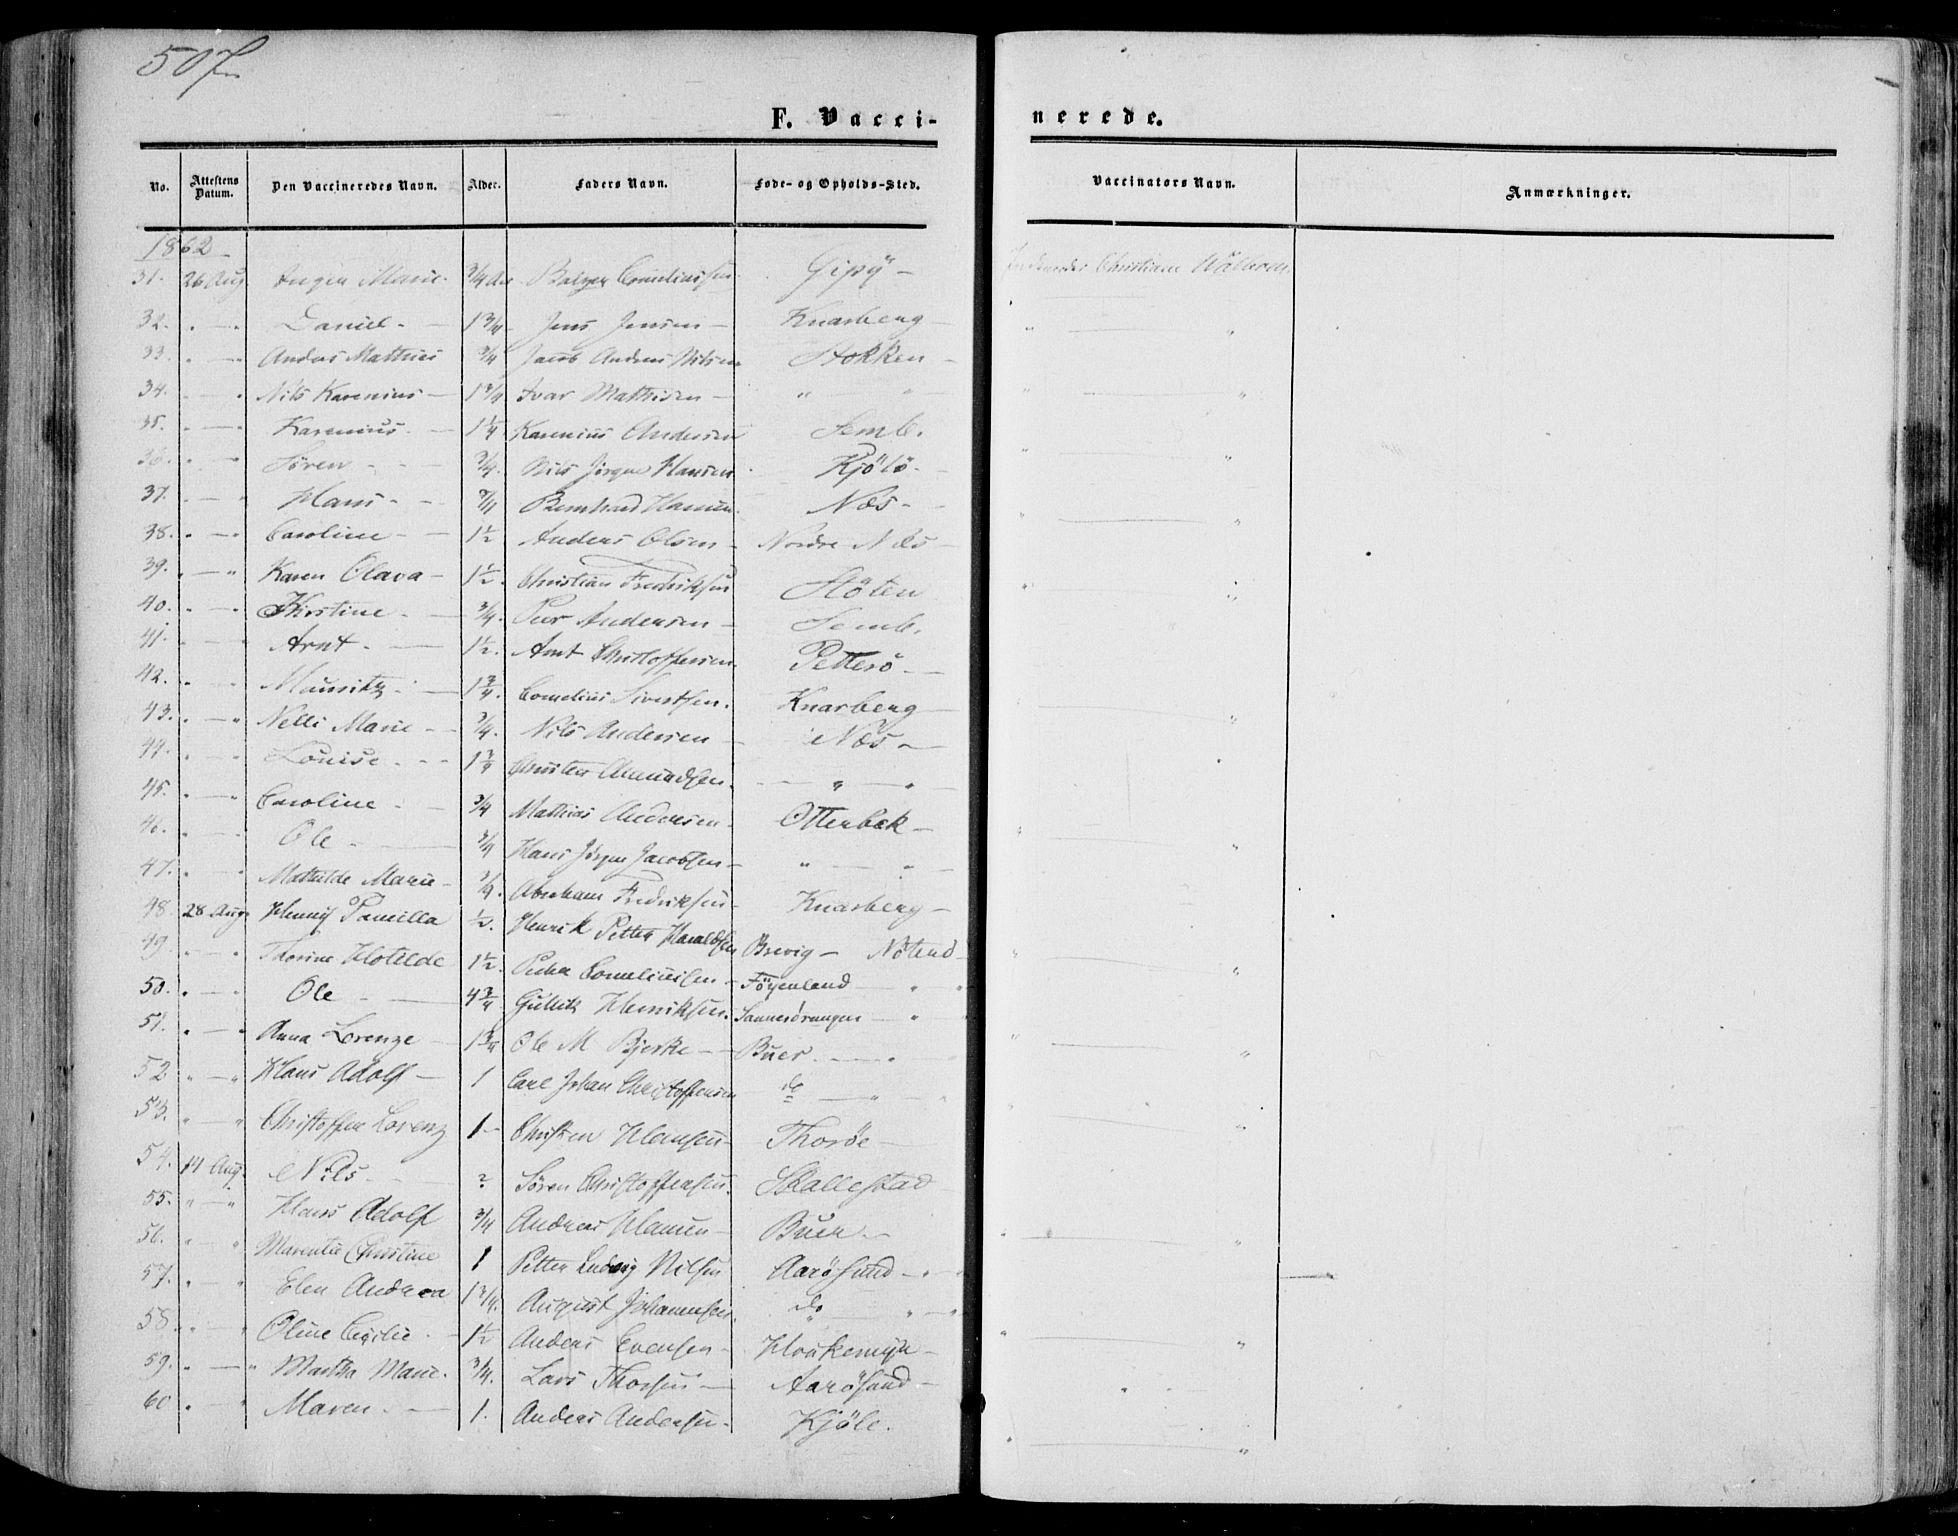 507
F. Vacci-
nerede.
No. Attestens Datum. Den Vaccineredes Navn. Alder. Faders Navn. Føde- og Opholds-Sted. Vaccinators Navn. Anmærkninger.
1862
31. 26 Aug Marie 3/4 Corneliussen Gipö Christiane
32. " Daniel 1 3/4 Jens Jensen Knarberg " "
33. " Anders Mathias 3/4 Jacob Anders Nilsen Stokken
34. " Nils Karenius 1 3/4 Ivar Mathisen " " " "
35. " Karenius 1 1/4 Karenius Andersen Semb.
36. " Sören 3/4. Nils Jörgen Hansen Kjölö " "
37. " Hans 3/4 Bernhard Hansen Næs
38. " Caroline 1 1/2 Anders Olsen Nordre Næs
39. " Karen Olava 1 1/2. Christian Fredriksen Stöten
40. " Kirstine 3/4. Per Andersen Semb.
41. " Arnt 1 1/2. Arnt Christoffersen Petterö
42. " Mauritz 1 3/4. Cornelius Sivertsen. Knarberg
43. " Nelli Marie 3/4. Nils Andersen Næs
44. " Louise 1 3/4 Christen Amundsen " "
45. " Caroline 3/4 Mathias Andersen Otterbek
46. " Ole 3/4 Hans Jörgen Jacobsen " "
47. " Mathilde Marie 3/4. Abraham Fredriksen Knarberg
48. 28 Aug Pamilla 1/2. Henrik Petter Haraldsen Brevig Nöterö
49. " Thorine Klotilde 1 1/2 Peder Corneliusen Föyenland " "
50. " Ole 4 3/4 Gullik Henriksen. " "
51. " Anna Lorenze 1 3/4 Ole M Bjerke Buer "
52 " Hans Adolf 1 Carl Johan Christoffersen do " "
53. " Christoffer Lorenz 1 Christen Hansen Thorøe
54. 14 Aug. Nils ? Sören Christoffersen. Skallestad
55. " Hans Adolf 3/4 Andreas Hansen Buer
56. " Christine 1 Petter Ludvig Nilsen Aarösund " "
57. " Elen Andrea 1 3/4. August Johannesen. do " "
58. " Oline Cecilie 1 1/2 Anders Evensen
59. " Martha Marie. 3/4. Lars Thorsen Aarösund
60 " Maren 1. Anders Andersen. Kjöle.